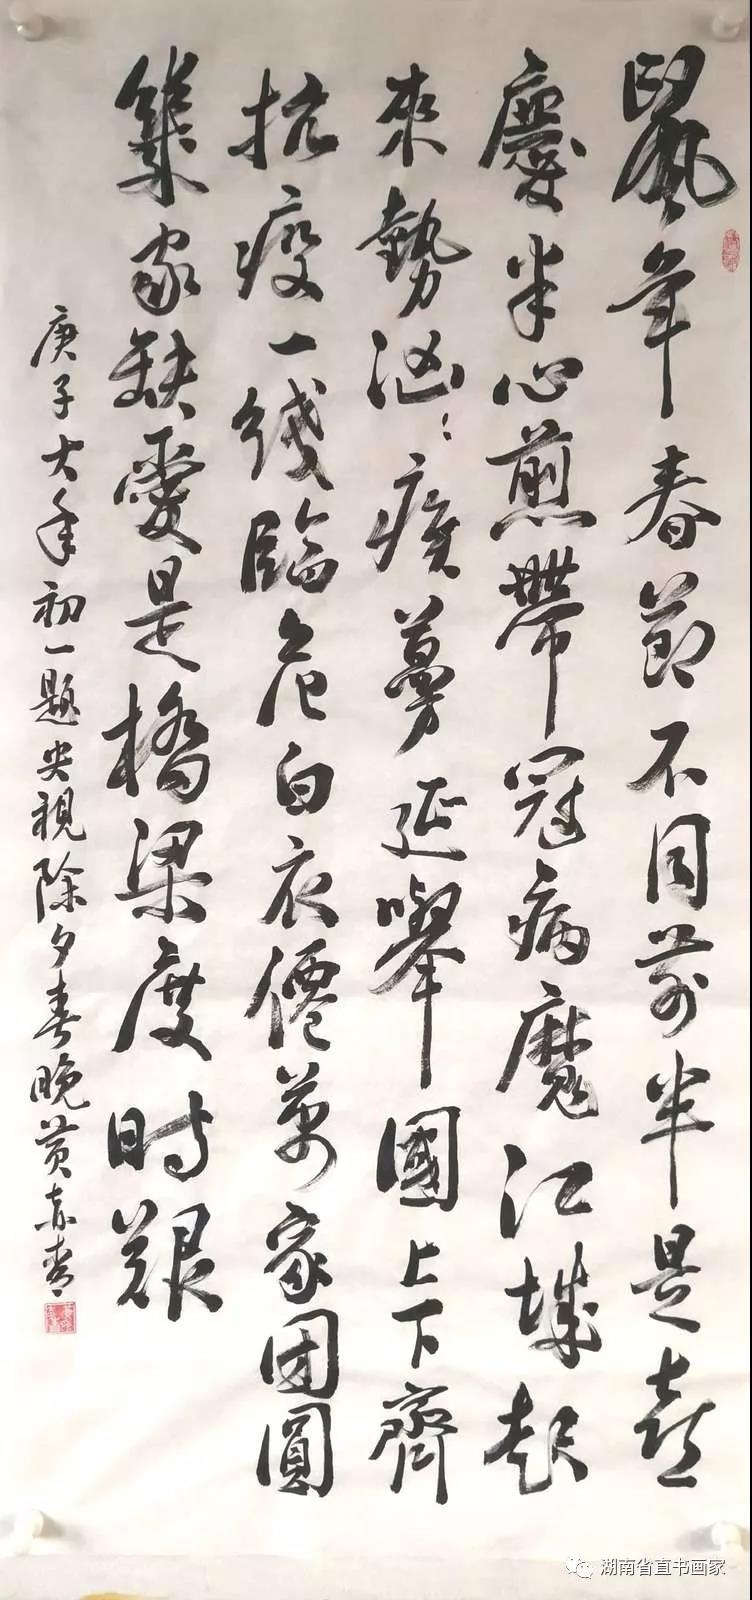 鼠年春節不同前半是喜
慶半心煎帶冠病魔江城起
來勢汹：疾蔓延舉國上下齊
抗疫一綫臨危白衣僊萬家团圓
幾家缺愛是橋梁度時艱
庚子大年初一题央視除夕春晚黄
湖南省直书画家